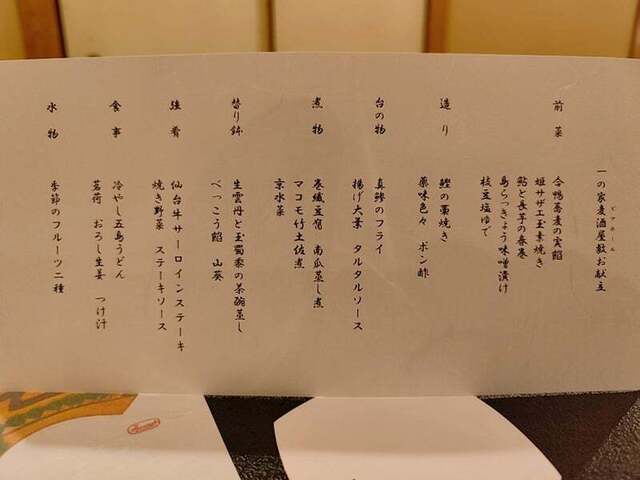 一の家麦酒屋敷お献立
ビアホール
前菜
合鴨蕎麦の実餡
姫サザエ玉素焼き
鮎と長芋の春巻
島らっきょう味噌漬け
枝豆塩ゆで
造り
鰹の藁焼き
薬味色々 ポン酢
台の物
真鯵のフライ
揚げ大葉 タルタルソース
煮物
巻繊豆腐 南瓜蒸し煮
マコモ竹土佐煮
京水菜
替り鉢
生雲丹と玉蜀黍の茶碗蒸し
べっこう餡 山葵
強肴
仙台牛サーロインステーキ
焼き野菜 ステーキソース
食事
冷やし五島うどん
茗荷 おろし生姜 つけ汁
水物
季節のフルーツ二種